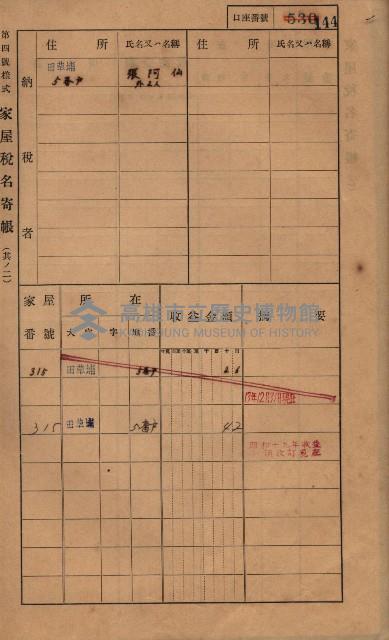 口座番號 530 144
第四號樣式 家屋稅名寄帳 (其ノ二)
住所 氏名又ハ名稱 住所 氏名又ハ名稱
納稅者
田草埔
5番戶
張阿仙
外2人
家屋番號 所在 收益金額 摘要
大字 字 地番
高雄市立歷史博物館
KAOHSIUNG MUSEUM OF HISTORY
315 田草埔 5番戶
315 田草埔 5番戶 42
昭和十九年